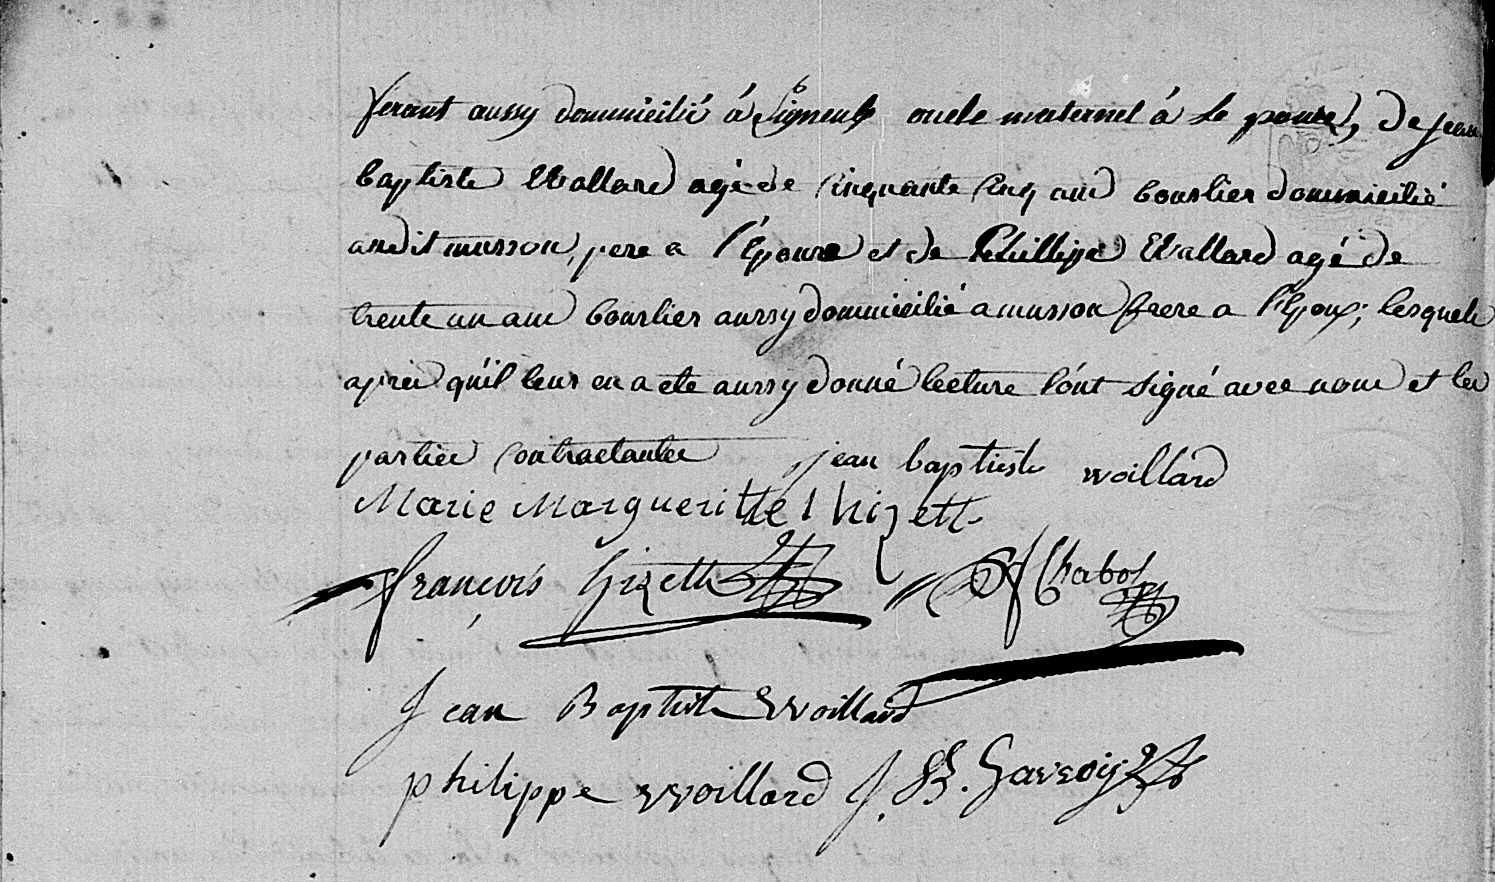 ferant aussy domicilié á Signeulx oncle maternel á Le pouse, de jean
baptiste Wallard agé de cinquante cinq ans bourlier domicilié
audit musson, pere a l'Epouse et de Phillipe Wallard agé de
trente un ans bourlier aussy domicilié a musson frere a l'Epoux; lesquels
aprés qu'il leur en a eté aussy donné lecture l'ont signé avec nous et les
parties contractantes jean baptiste woillard
Marie Margueritte hizette
françois hizette Chabot
Jean Baptiste Woillard
philippe woillard J. B. Gavroij